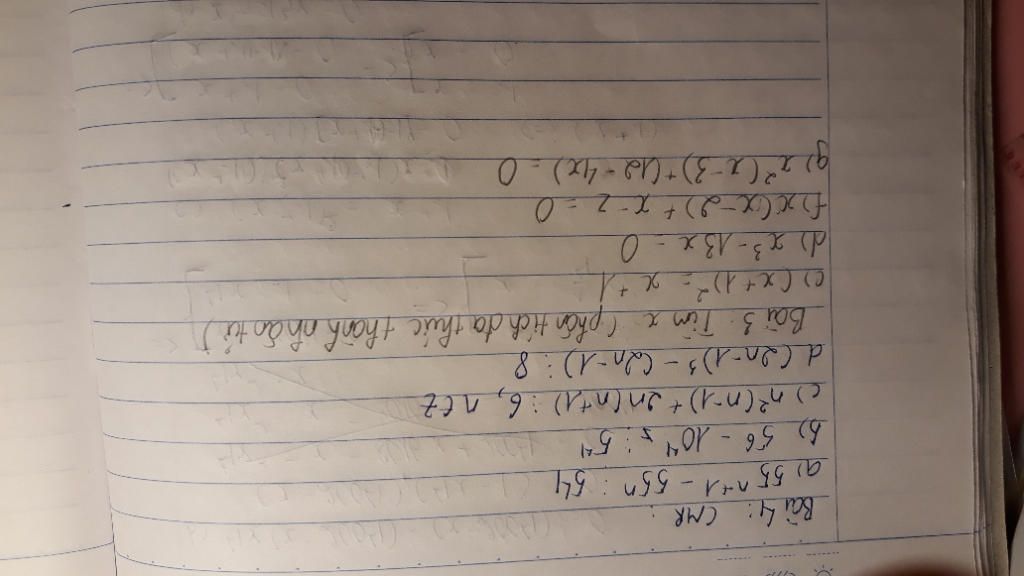 Bài 4: CMR:
a) 55ⁿ⁺¹ - 55ⁿ ⋮ 54
b) 5⁶ - 10⁴ ⋮ 5⁴
c) n²(n-1) + 2n(n+1) ⋮ 6, n ∈ Z
d (2n-1)³ - (2n-1) ⋮ 8
Bài 3: Tìm x (phân tích đa thức thành nhân tử)
c) (x+1)² = x+1
d) x³ - 13x = 0
f) x(x-2) + x - 2 = 0
g) x²(x-3) + (12-4x) = 0